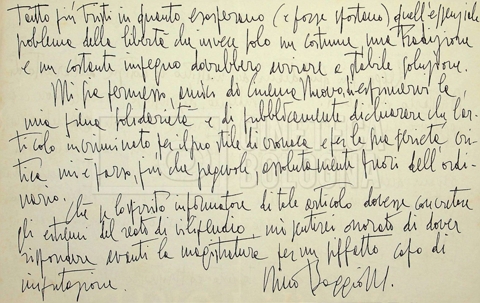 Tanto più tristi in quanto esasperano (e forse spostano) quell'essenziale
problema della libertà che invece solo un costume, una tradizione
e un costante impegno dovrebbero avviare a stabile soluzione.
Mi sia permesso, amici di Cinema Nuovo, di esprimervi la
mia piena solidarietà e di pubblicamente dichiarare che l'ar-
ticolo incriminato per il suo stile di cronaca e per la sua serietà cri-
tica mi è parso, più che pregevole, assolutamente fuori dell'ordi-
nario.
Che se lo spirito informatore di tale articolo dovesse concretare
gli estremi del reato di vilipendio, mi sentirei onorato di dover
rispondere avanti la magistratura per un siffatto capo di
imputazione.